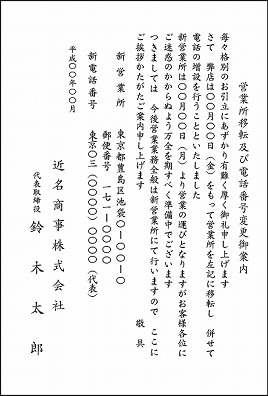 営業所移転及び電話番号変更御案内
毎々格別のお引立にあずかり有難く厚く御礼申し上げます
さて 弊店は〇〇月〇〇日(金)をもって営業所を左記に移転し 併せて
電話の増設を行うことといたしました
新営業所は〇〇月〇〇日(月)より営業の運びとなりますがお客様各位に
ご迷惑のかからぬよう万全を期すべく準備中でございます
つきましては 今後営業業務全般は新営業所にて行いますので ここに
ご挨拶かたがたご案内申し上げます
敬具
新営業所 東京都豊島区池袋〇ー〇〇ー〇
郵便番号 一七一ー〇〇〇〇
新電話番号 東京〇三(〇〇〇〇)〇〇〇〇(代表)
平成〇〇年〇〇月
近名商事株式会社
代表取締役 鈴木太郎